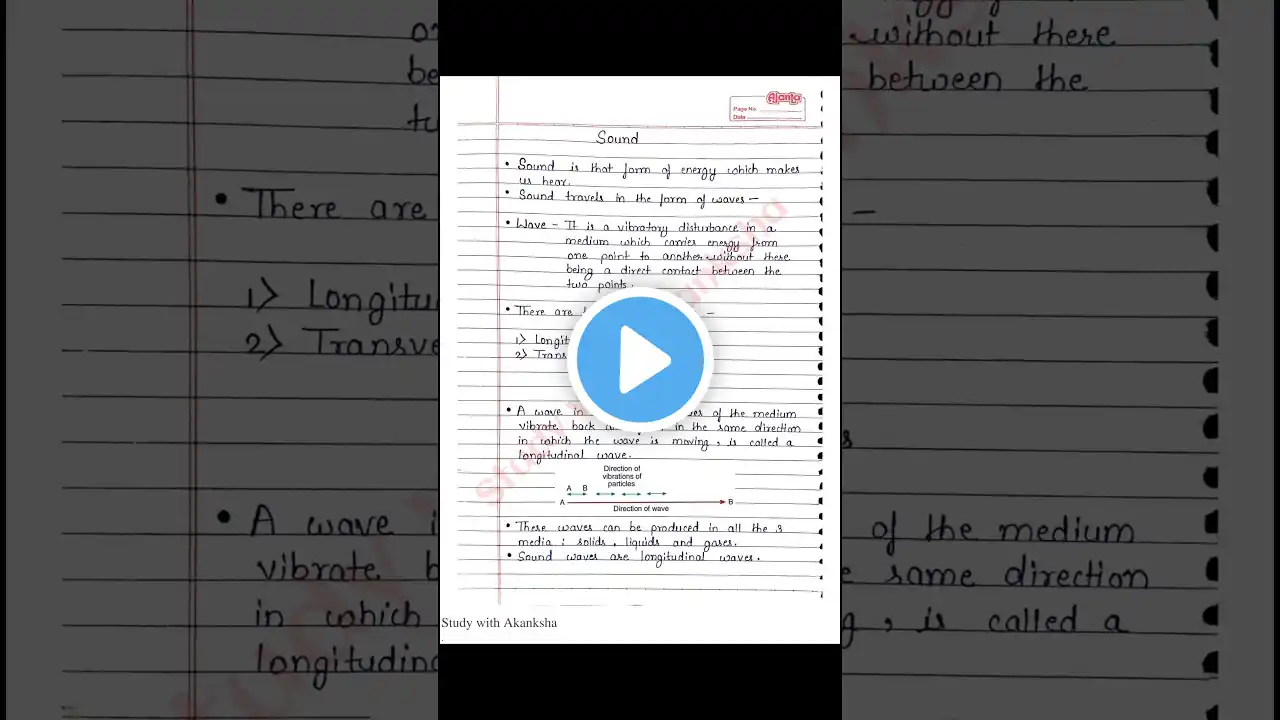 Ajanta
Page No.
Date
Sound
• Sound is that form of energy which makes
us hear.
• Sound travels in the form of waves –
• Wave – It is a vibratory disturbance in a
medium which carries energy from
one point to another without there
being a direct contact between the
two points.
• There are
–
1) Longit
2) Trans
• A wave in of the medium
vibrate back in the same direction
in which the wave is moving, is called a
longitudinal wave.
Direction of
vibrations of
particles
A B
A B
Direction of wave
• These waves can be produced in all the 3
media : solids, liquids and gases.
• Sound waves are longitudinal waves.
Study with Akanksha
without there
between the
• There are –
1) Longitu
2) Transve
• A wave i of the medium
vibrate b same direction
in which , is called a
longitudin